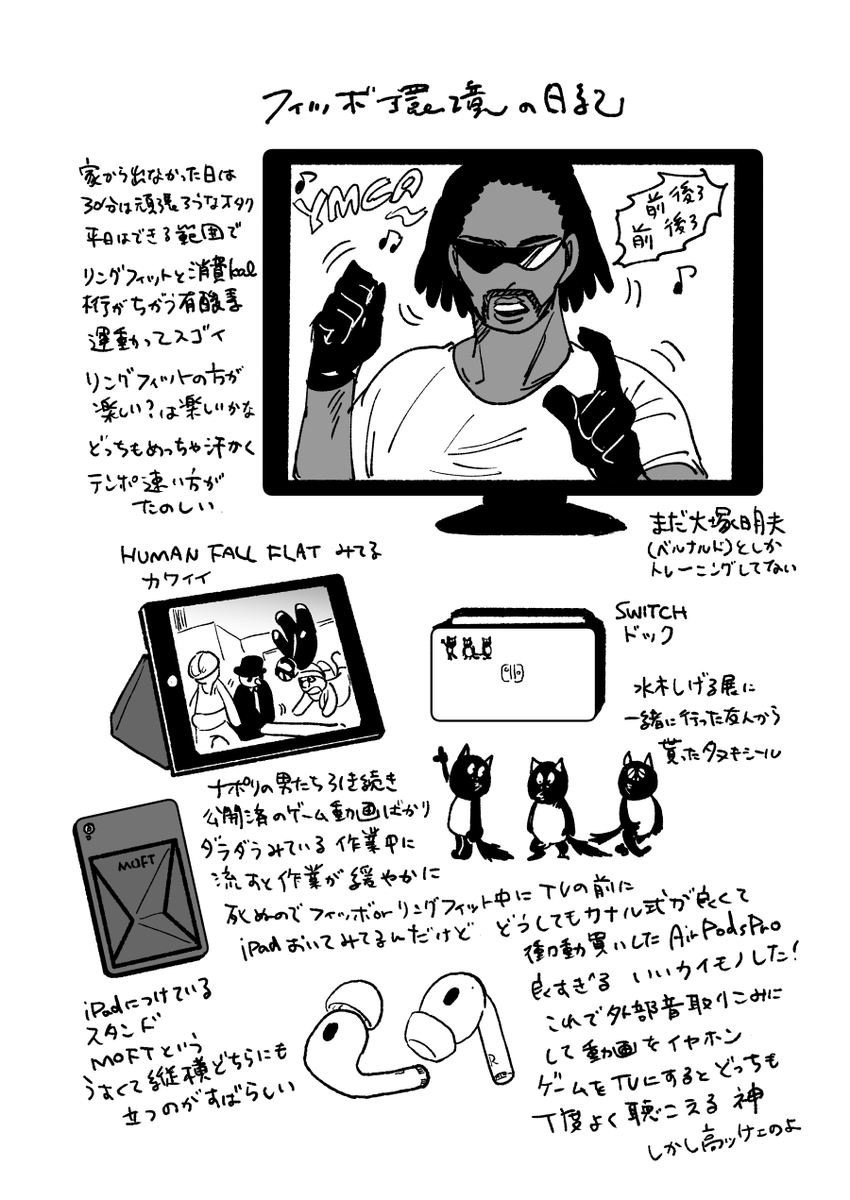 フィッボ環境の日記
家から出なかった日は
30分は頑張ろうなオタク
平日はできる範囲で
リングフィットと消費kcal
桁がちがう有酸素
運動ってスゴイ
リングフィットの方が
楽しい?は楽しいかな
どっちもめっちゃ汗かく
テンポ速い方が
たのしい
YMCA
前後ろ
前後ろ
まだ大塚明夫
(ベルナルド)としか
トレーニングしてない
HUMAN FALL FLAT みてる
カワイイ
SWITCH
ドック
水木しげる展に
一緒に行った友人から
貰ったタヌキシール
ナポリの男たち引き続き
公開済のゲーム動画ばかり
ダラダラみている 作業中に
流すと作業が緩やかに
死ぬのでフィッボorリングフィット中にTVの前に
iPadおいてみてるんだけど
MOFT
iPadにつけている
スタンド
MOFTという
うすくて縦横どちらにも
立つのがすばらしい
どうしてもカナル式が良くて
衝動買いしたAirPodsPro
良すぎる いいカイモノした!
これで外部音取りこみに
して動画をイヤホン
ゲームをTVにするとどっちも
丁度よく聴こえる 神
しかし高ッけェのよ
R